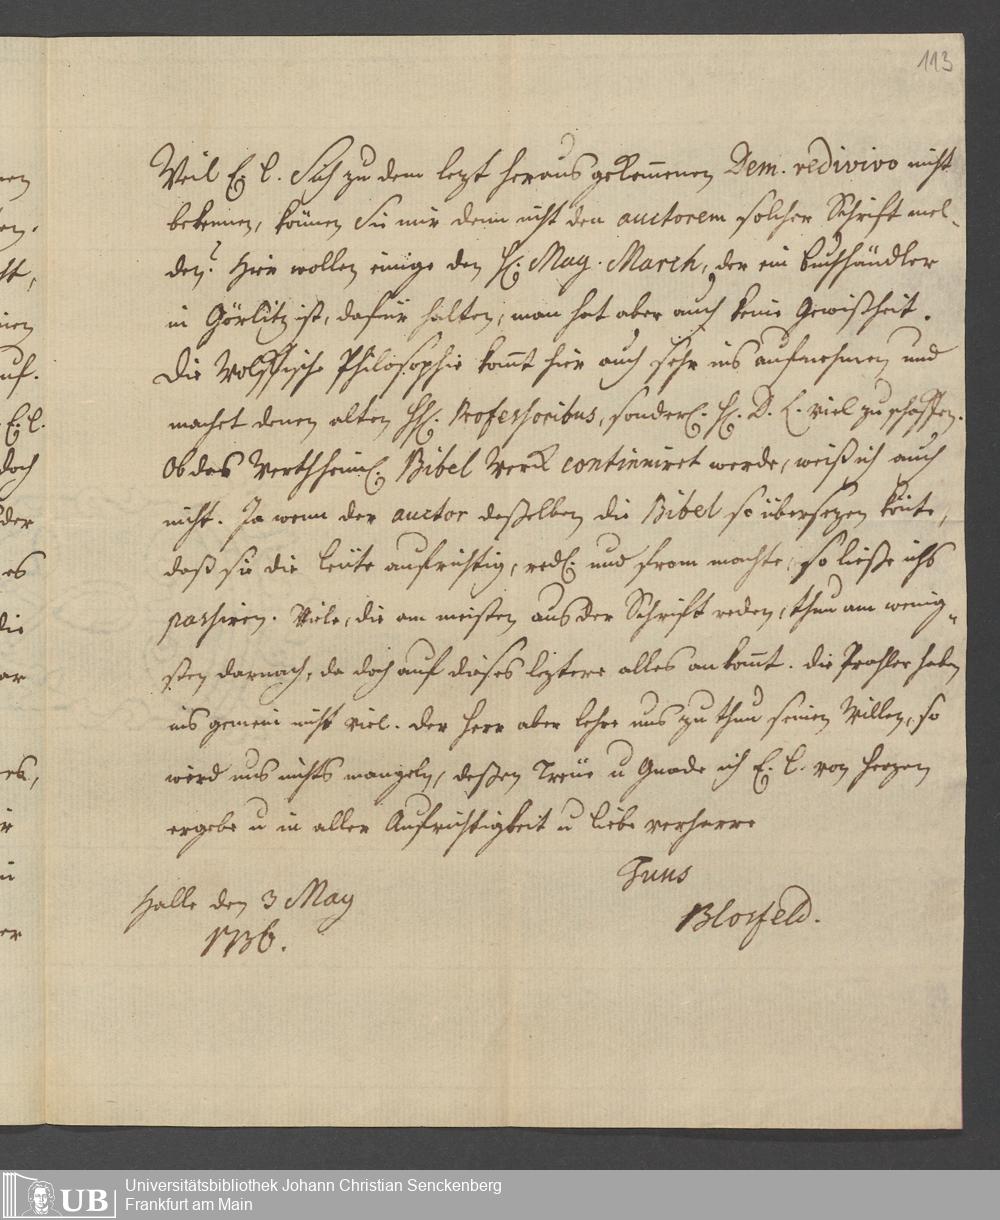 113
Weil E. l. Sich zu dem lezt heraus gekom̅enen Dem. redivivo nicht
bekennen, kön̅en Sie mir denn nicht den auctorem solcher Schrift mel-
den? Hier wollen einige den H. Mag. March, der ein buchhändler
in Görlitz ist, dafür halten, man hat aber auch keine Gewißheit.
Die Wolffische Philosophie kom̅t hier auch sehr ins aufnehmen und
machet denen alten HH. Professoribus, sonderl. H. D. L. viel zu schaffen.
Ob das Werthheiml. Bibel Werck continuiret werde, weiß ich auch
nicht. Ja wenn der auctor deßelben die Bibel so übersezen kön̅te,
daß sie die leüte aufrichtig, redl. und from machte, so ließe ichs
passiren. Viele, die am meisten aus der Schrift reden, thun am wenig-
sten darnach, da doch auf dieses leztere alles ankom̅t. die Prahler haben
ins gemein nicht viel. Der Herr aber lehre uns zu thun seinen Willen, so
wird uns nichts mangeln, deßen Treüe u Gnade ich E. l. von herzen
ergebe u in aller Aufrichtigkeit u liebe verharre
Tuus
Halle den 3 May
Blosfeld.
1736.
nen
E. l.
doch
der
es
die
ar
er
UB
Universitätsbibliothek Johann Christian Senckenberg
Frankfurt am Main